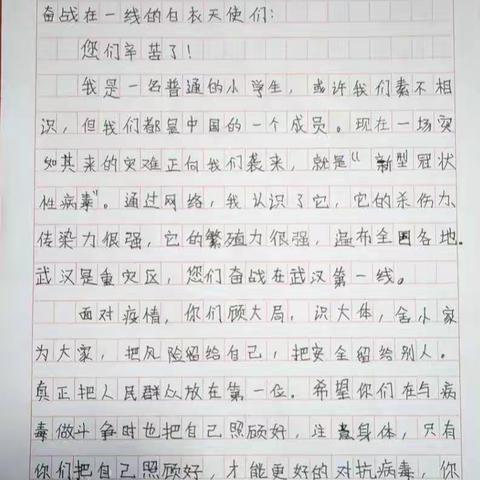 奋战在一线的白衣天使们:
您们辛苦了!
我是一名普通的小学生,或许我们素不相
识,但我们都是中国的一个成员。现在一场突
如其来的灾难正向我们袭来,就是“新型冠状
性病毒”。通过网络,我认识了它,它的杀伤力、
传染力很强,它的繁殖力很强,遍布全国各地.
武汉是重灾区,您们奋战在武汉第一线。
面对疫情,你们顾大局,识大体,舍小家
为大家,把风险留给自己,把安全留给别人。
真正把人民群众放在第一位.希望你们在与病
毒做斗争时也把自己照顾好,注意身体,只有
你们把自己照顾好,才能更好的对抗病毒,你